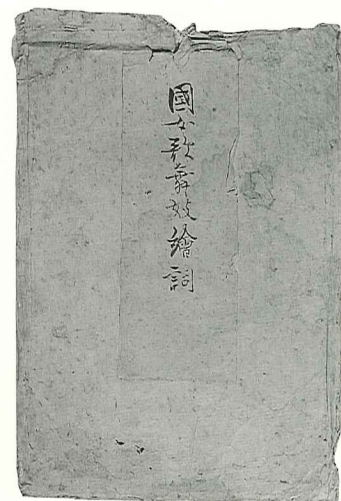 國女歌舞妓繪詞